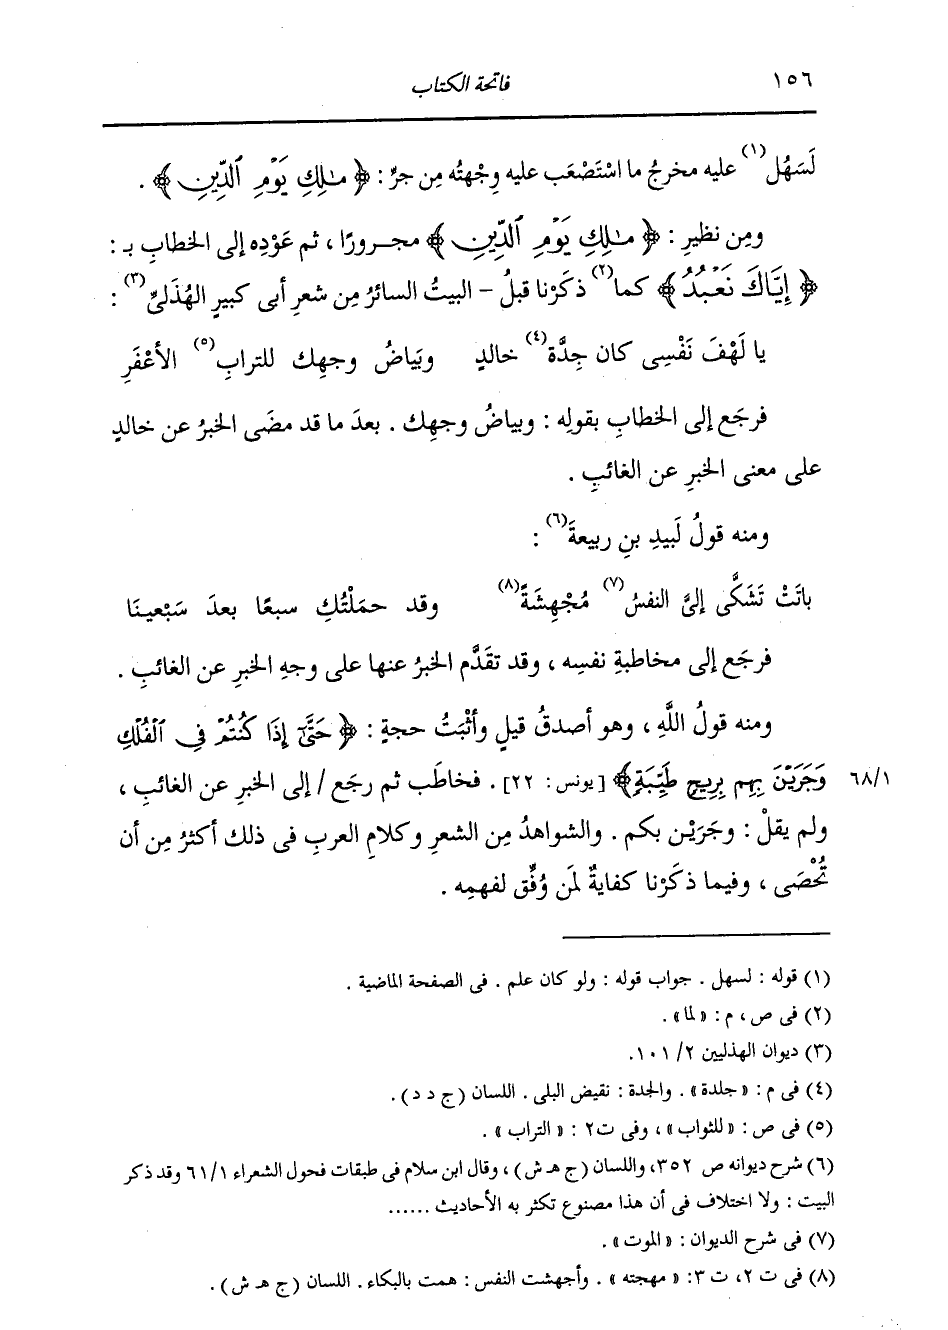 ١٥٦ فاتحة الكتاب
لَسَهُل(١) عليه مخرجُ ما اسْتَصْعَب عليه وِجْهتُه مِن جرِّ : ﴿ مَـٰلِكِ يَوْمِ ٱلدِّينِ ﴾ .
ومِن نظيرِ : ﴿ مَـٰلِكِ يَوْمِ ٱلدِّينِ ﴾ مجرورًا ، ثم عَوْدِه إلى الخطابِ بـ :
﴿ إِيَّاكَ نَعْبُدُ ﴾ كما(٢) ذكَرنا قبلُ – البيتُ السائرُ مِن شعرِ أبى كبيرٍ الهُذَلىِّ(٣) :
يا لَهْفَ نَفْسِى كان جِدَّة(٤) خالدٍ وبَياضُ وجهِك للترابِ(٥) الأعْفَرِ
فرجَع إلى الخطابِ بقولِه : وبياضُ وجهِك . بعدَ ما قد مضَى الخبرُ عن خالدٍ
على معنى الخبرِ عن الغائبِ .
ومنه قولُ لَبيدِ بنِ ربيعةَ(٦) :
باتَتْ تَشَكَّى إلىَّ النفسُ(٧) مُجْهِشَةً(٨) وقد حمَلْتُكِ سبعًا بعدَ سَبْعينَا
فرجَع إلى مخاطبةِ نفسِه ، وقد تقَدَّم الخبرُ عنها على وجهِ الخبرِ عن الغائبِ .
ومنه قولُ اللَّهِ ، وهو أصدقُ قيلٍ وأثْبَتُ حجةٍ : ﴿ حَتَّىٰٓ إِذَا كُنتُمْ فِى ٱلْفُلْكِ
١/٦٨ وَجَرَيْنَ بِهِم بِرِيحٍ طَيِّبَةٍ﴾ [يونس: ٢٢] . فخاطَب ثم رجَع / إلى الخبرِ عن الغائبِ ،
ولم يقلْ : وجَرَيْن بكم . والشواهدُ مِن الشعرِ وكلامِ العربِ فى ذلك أكثرُ مِن أن
تُحْصَى ، وفيما ذكَرْنا كفايةٌ لمَن وُفِّق لفهمِه .
(١) قوله : لسهل . جواب قوله : ولو كان علم . فى الصفحة الماضية .
(٢) فى ص ، م : « لما » .
(٣) ديوان الهذليين ٢/ ١٠١.
(٤) فى م : « جلدة » . والجدة : نقيض البلى . اللسان (ج د د) .
(٥) فى ص : « للثواب » ، وفى ت٢ : « التراب » .
(٦) شرح ديوانه ص ٣٥٢، واللسان (ج هـ ش) ، وقال ابن سلام فى طبقات فحول الشعراء ١/ ٦١ وقد ذكر
البيت : ولا اختلاف فى أن هذا مصنوع تكثر به الأحاديث ......
(٧) فى شرح الديوان : « الموت » .
(٨) فى ت ٢، ت ٣: « مهجته » . وأجهشت النفس : همت بالبكاء . اللسان (ج هـ ش) .